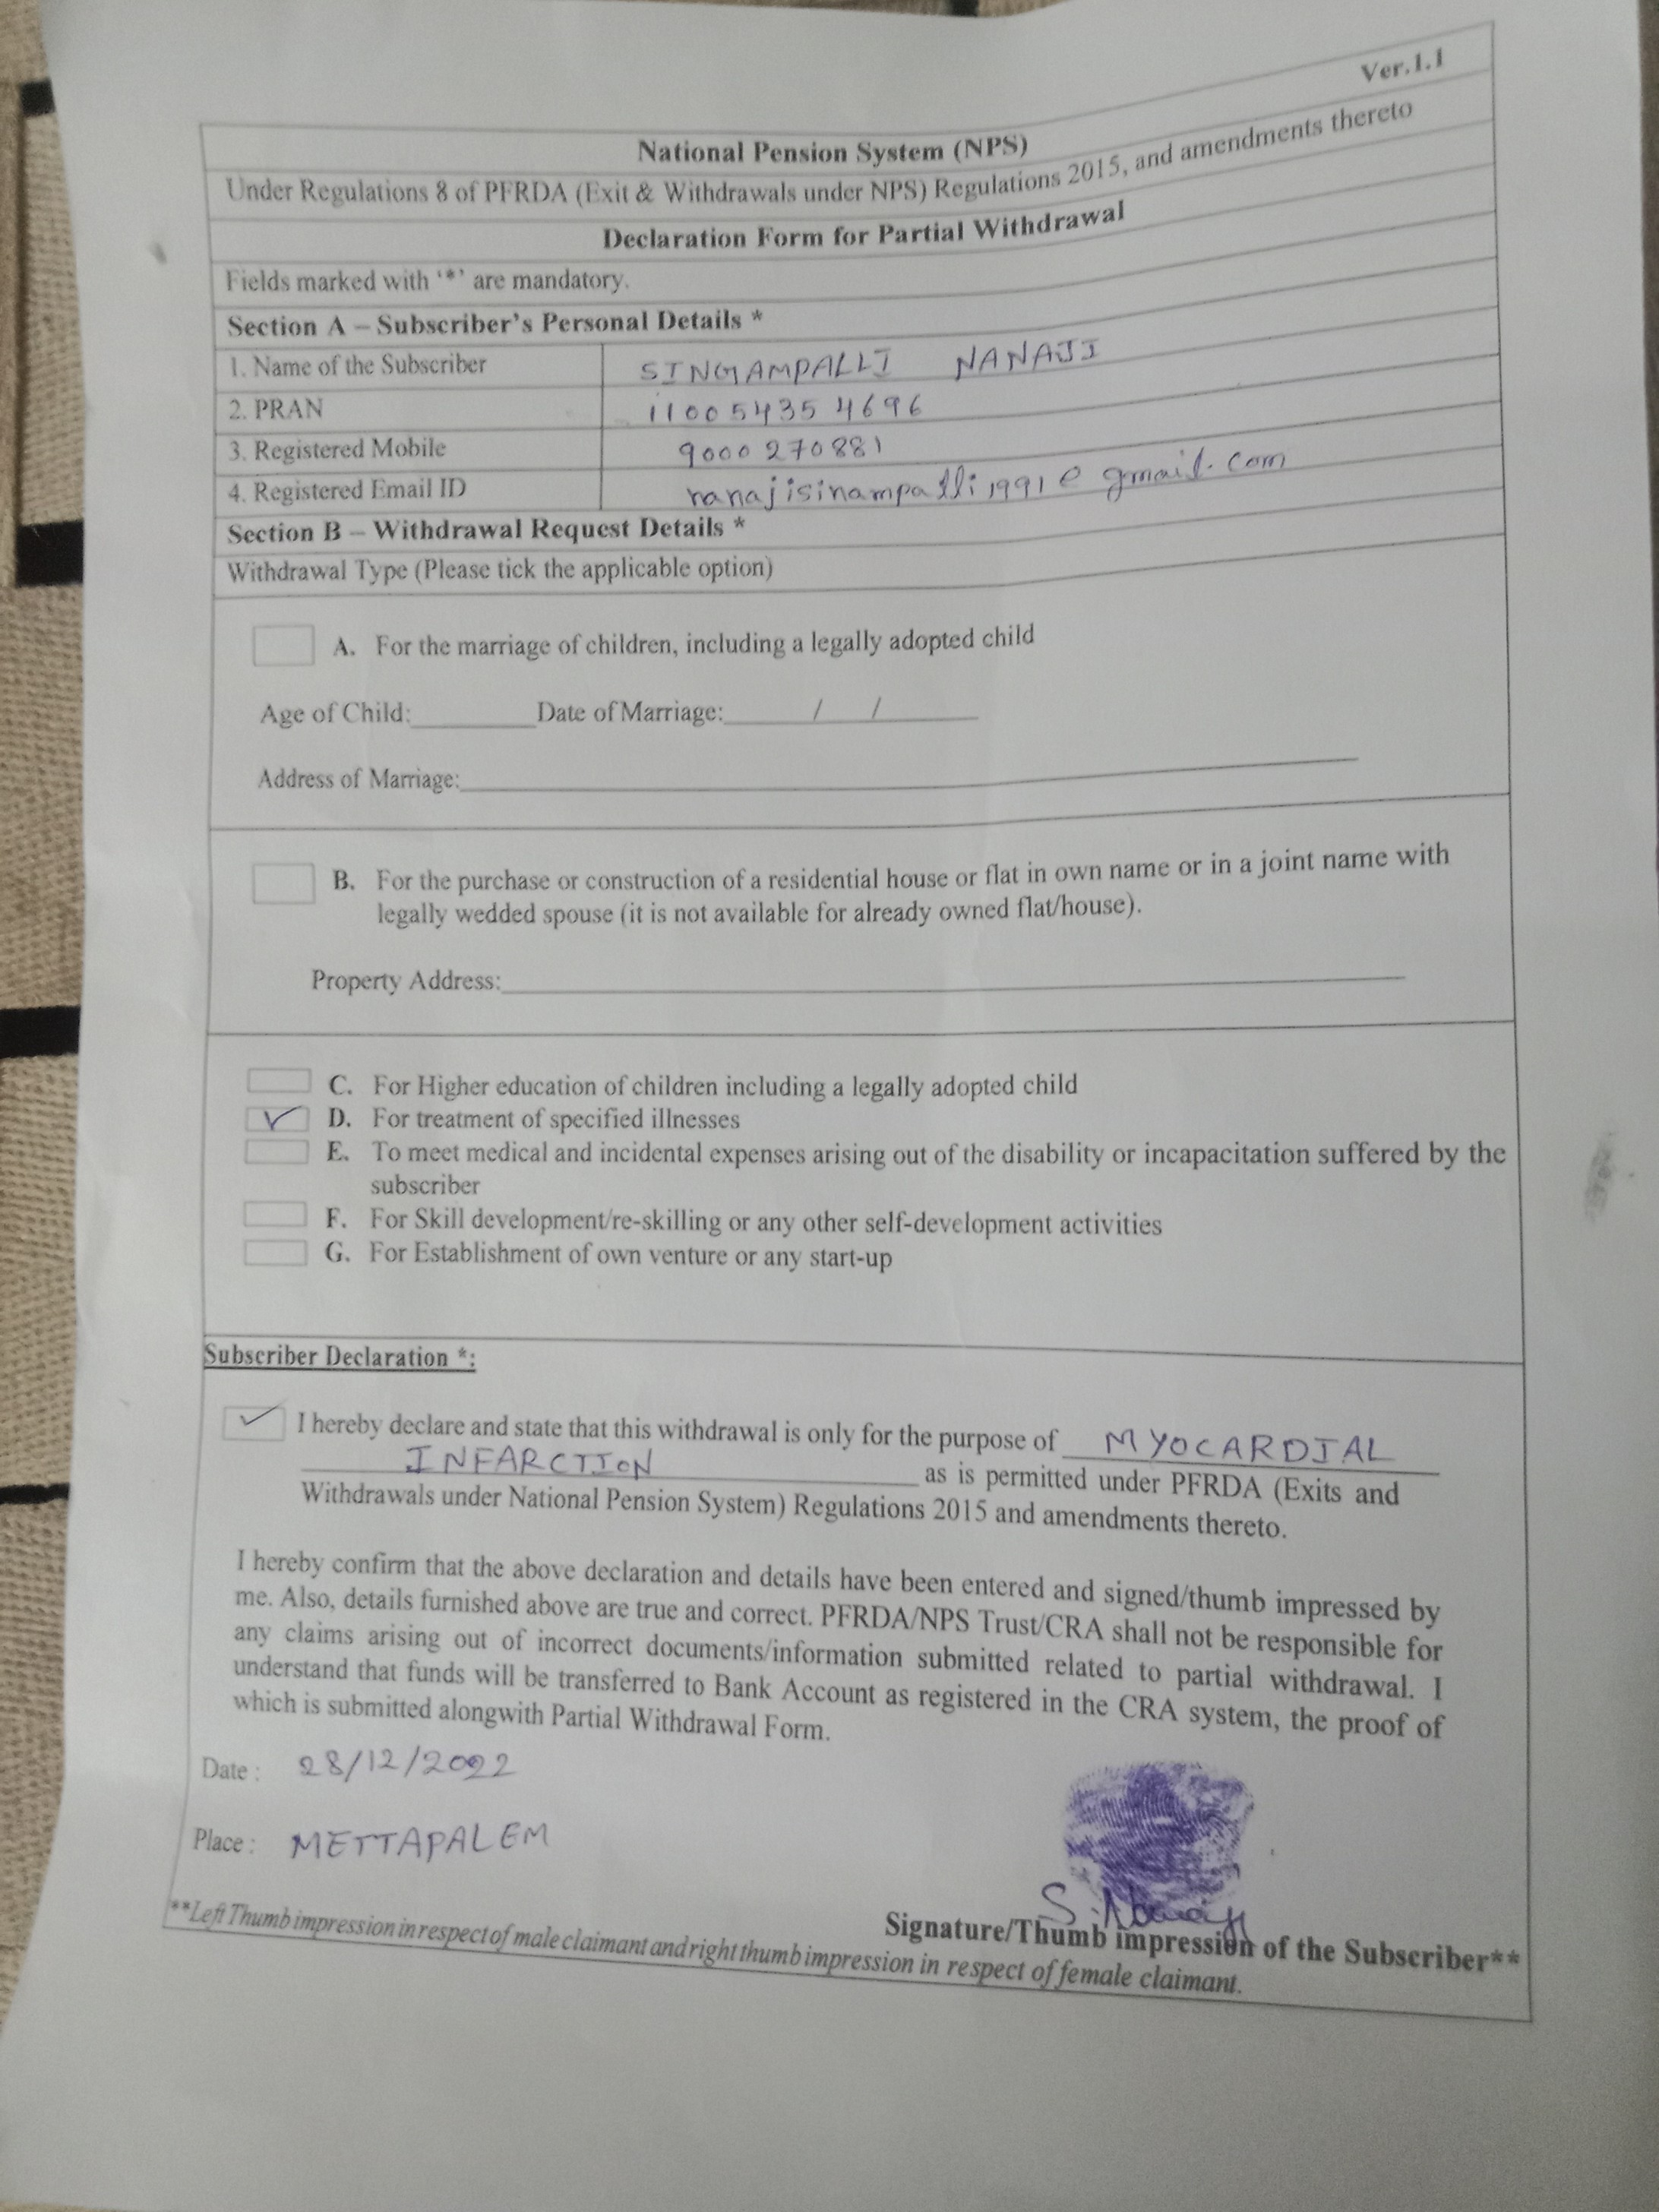 Ver.1.1
National Pension System (NPS)
Under Regulations 8 of PFRDA (Exit & Withdrawals under NPS) Regulations 2015, and amendments thereto
Declaration Form for Partial Withdrawal
Fields marked with '*' are mandatory.
Section A – Subscriber's Personal Details *
1. Name of the Subscriber SINGAMPALLI NANAJI
2. PRAN 110054354696
3. Registered Mobile 9000270881
4. Registered Email ID nanajisinampalli1991@gmail.com
Section B – Withdrawal Request Details *
Withdrawal Type (Please tick the applicable option)
A. For the marriage of children, including a legally adopted child
Age of Child: Date of Marriage: / /
Address of Marriage:
B. For the purchase or construction of a residential house or flat in own name or in a joint name with
legally wedded spouse (it is not available for already owned flat/house).
Property Address:
C. For Higher education of children including a legally adopted child
✓ D. For treatment of specified illnesses
E. To meet medical and incidental expenses arising out of the disability or incapacitation suffered by the
subscriber
F. For Skill development/re-skilling or any other self-development activities
G. For Establishment of own venture or any start-up
Subscriber Declaration *:
✓ I hereby declare and state that this withdrawal is only for the purpose of MYOCARDIAL
INFARCTION as is permitted under PFRDA (Exits and
Withdrawals under National Pension System) Regulations 2015 and amendments thereto.
I hereby confirm that the above declaration and details have been entered and signed/thumb impressed by
me. Also, details furnished above are true and correct. PFRDA/NPS Trust/CRA shall not be responsible for
any claims arising out of incorrect documents/information submitted related to partial withdrawal. I
understand that funds will be transferred to Bank Account as registered in the CRA system, the proof of
which is submitted alongwith Partial Withdrawal Form.
Date : 28/12/2022
Place : METTAPALEM
S. Nanaji
Signature/Thumb impression of the Subscriber**
**Left Thumb impression in respect of male claimant and right thumb impression in respect of female claimant.